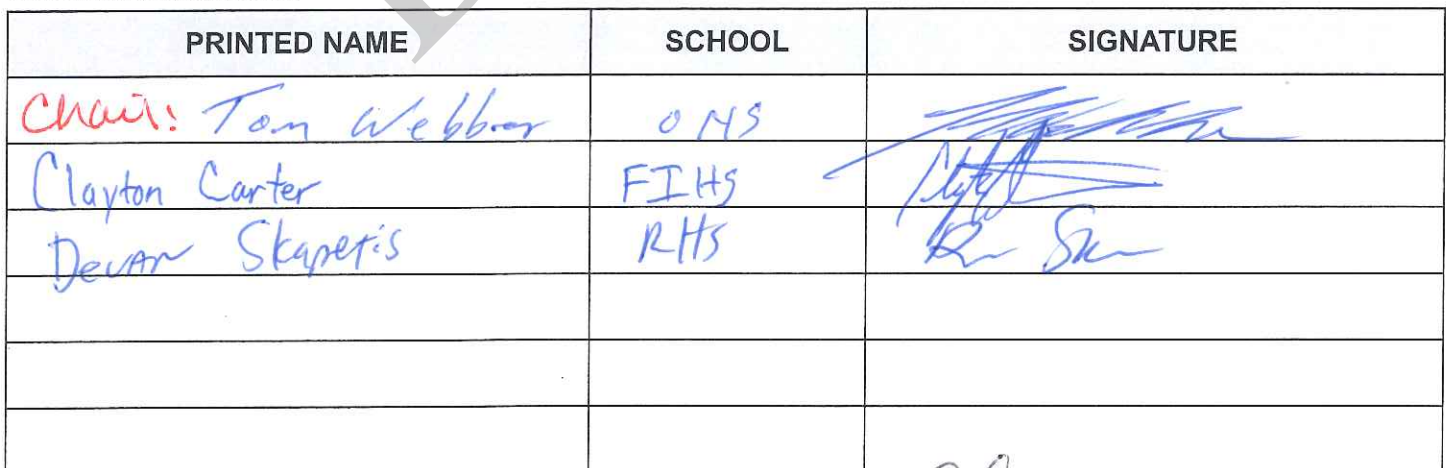 PRINTED NAME SCHOOL SIGNATURE
Chair: Tom Webber OHS
Clayton Carter FIHS
Devan Skapetis RHS